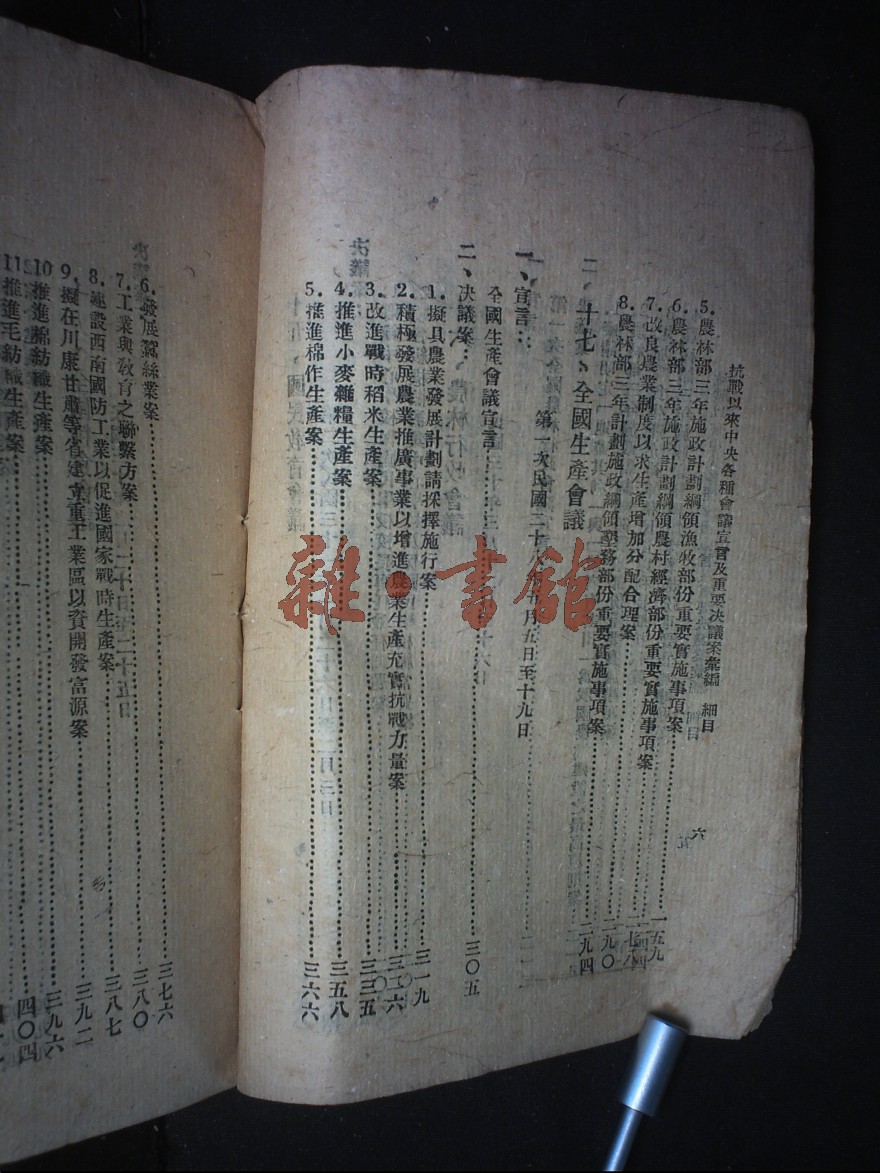 抗戰以來中央各種會議宣言及重要決議案彙編　細目
六
5.農林部三年施政計劃綱領漁牧部份重要實施事項案
6.農林部三年施政計劃綱領農村經濟部份重要實施事項案
7.改良農業制度以求生產增加分配合理案
8.農林部三年計劃施政綱領墾務部份重要實施事項案……二九四
十七、全國生產會議
第一次民國二十八年五月五日至十九日
一、宣言：
全國生產會議宣言……三〇五
二、決議案：
1.擬具農業發展計劃請採擇施行案……三一九
2.積極發展農業推廣事業以增進農業生產充實抗戰力量案……三二六
3.改進戰時稻米生產案……三三五
4.推進小麥雜糧生產案……三五八
5.推進棉作生產案……三六六
6.發展蠶絲業案……三七六
7.工業與教育之聯繫方案……三八〇
8.建設西南國防工業以促進國家戰時生產案……三八七
9.擬在川康甘肅等省建立重工業區以資開發富源案……三九二
10.推進棉紡織生產案……三九六
11.推進毛紡織生產案……四〇四
雜·書館